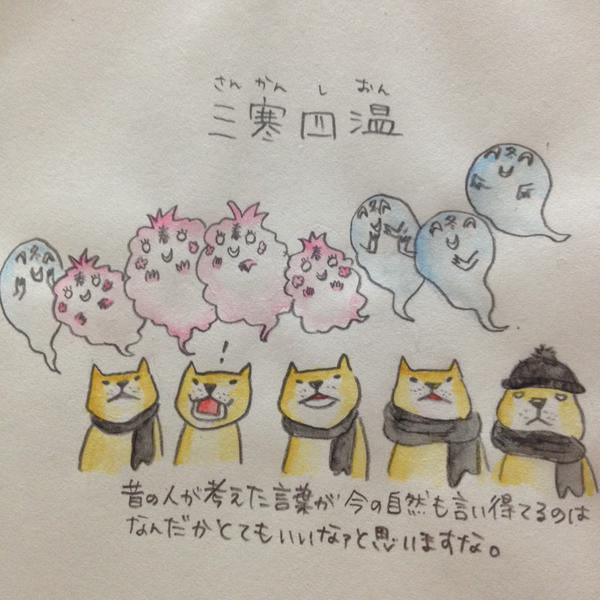 さん かん し おん
三寒四温
!
昔の人が考えた言葉が今の自然も言い得てるのは
なんだかとてもいいなァと思いますな。